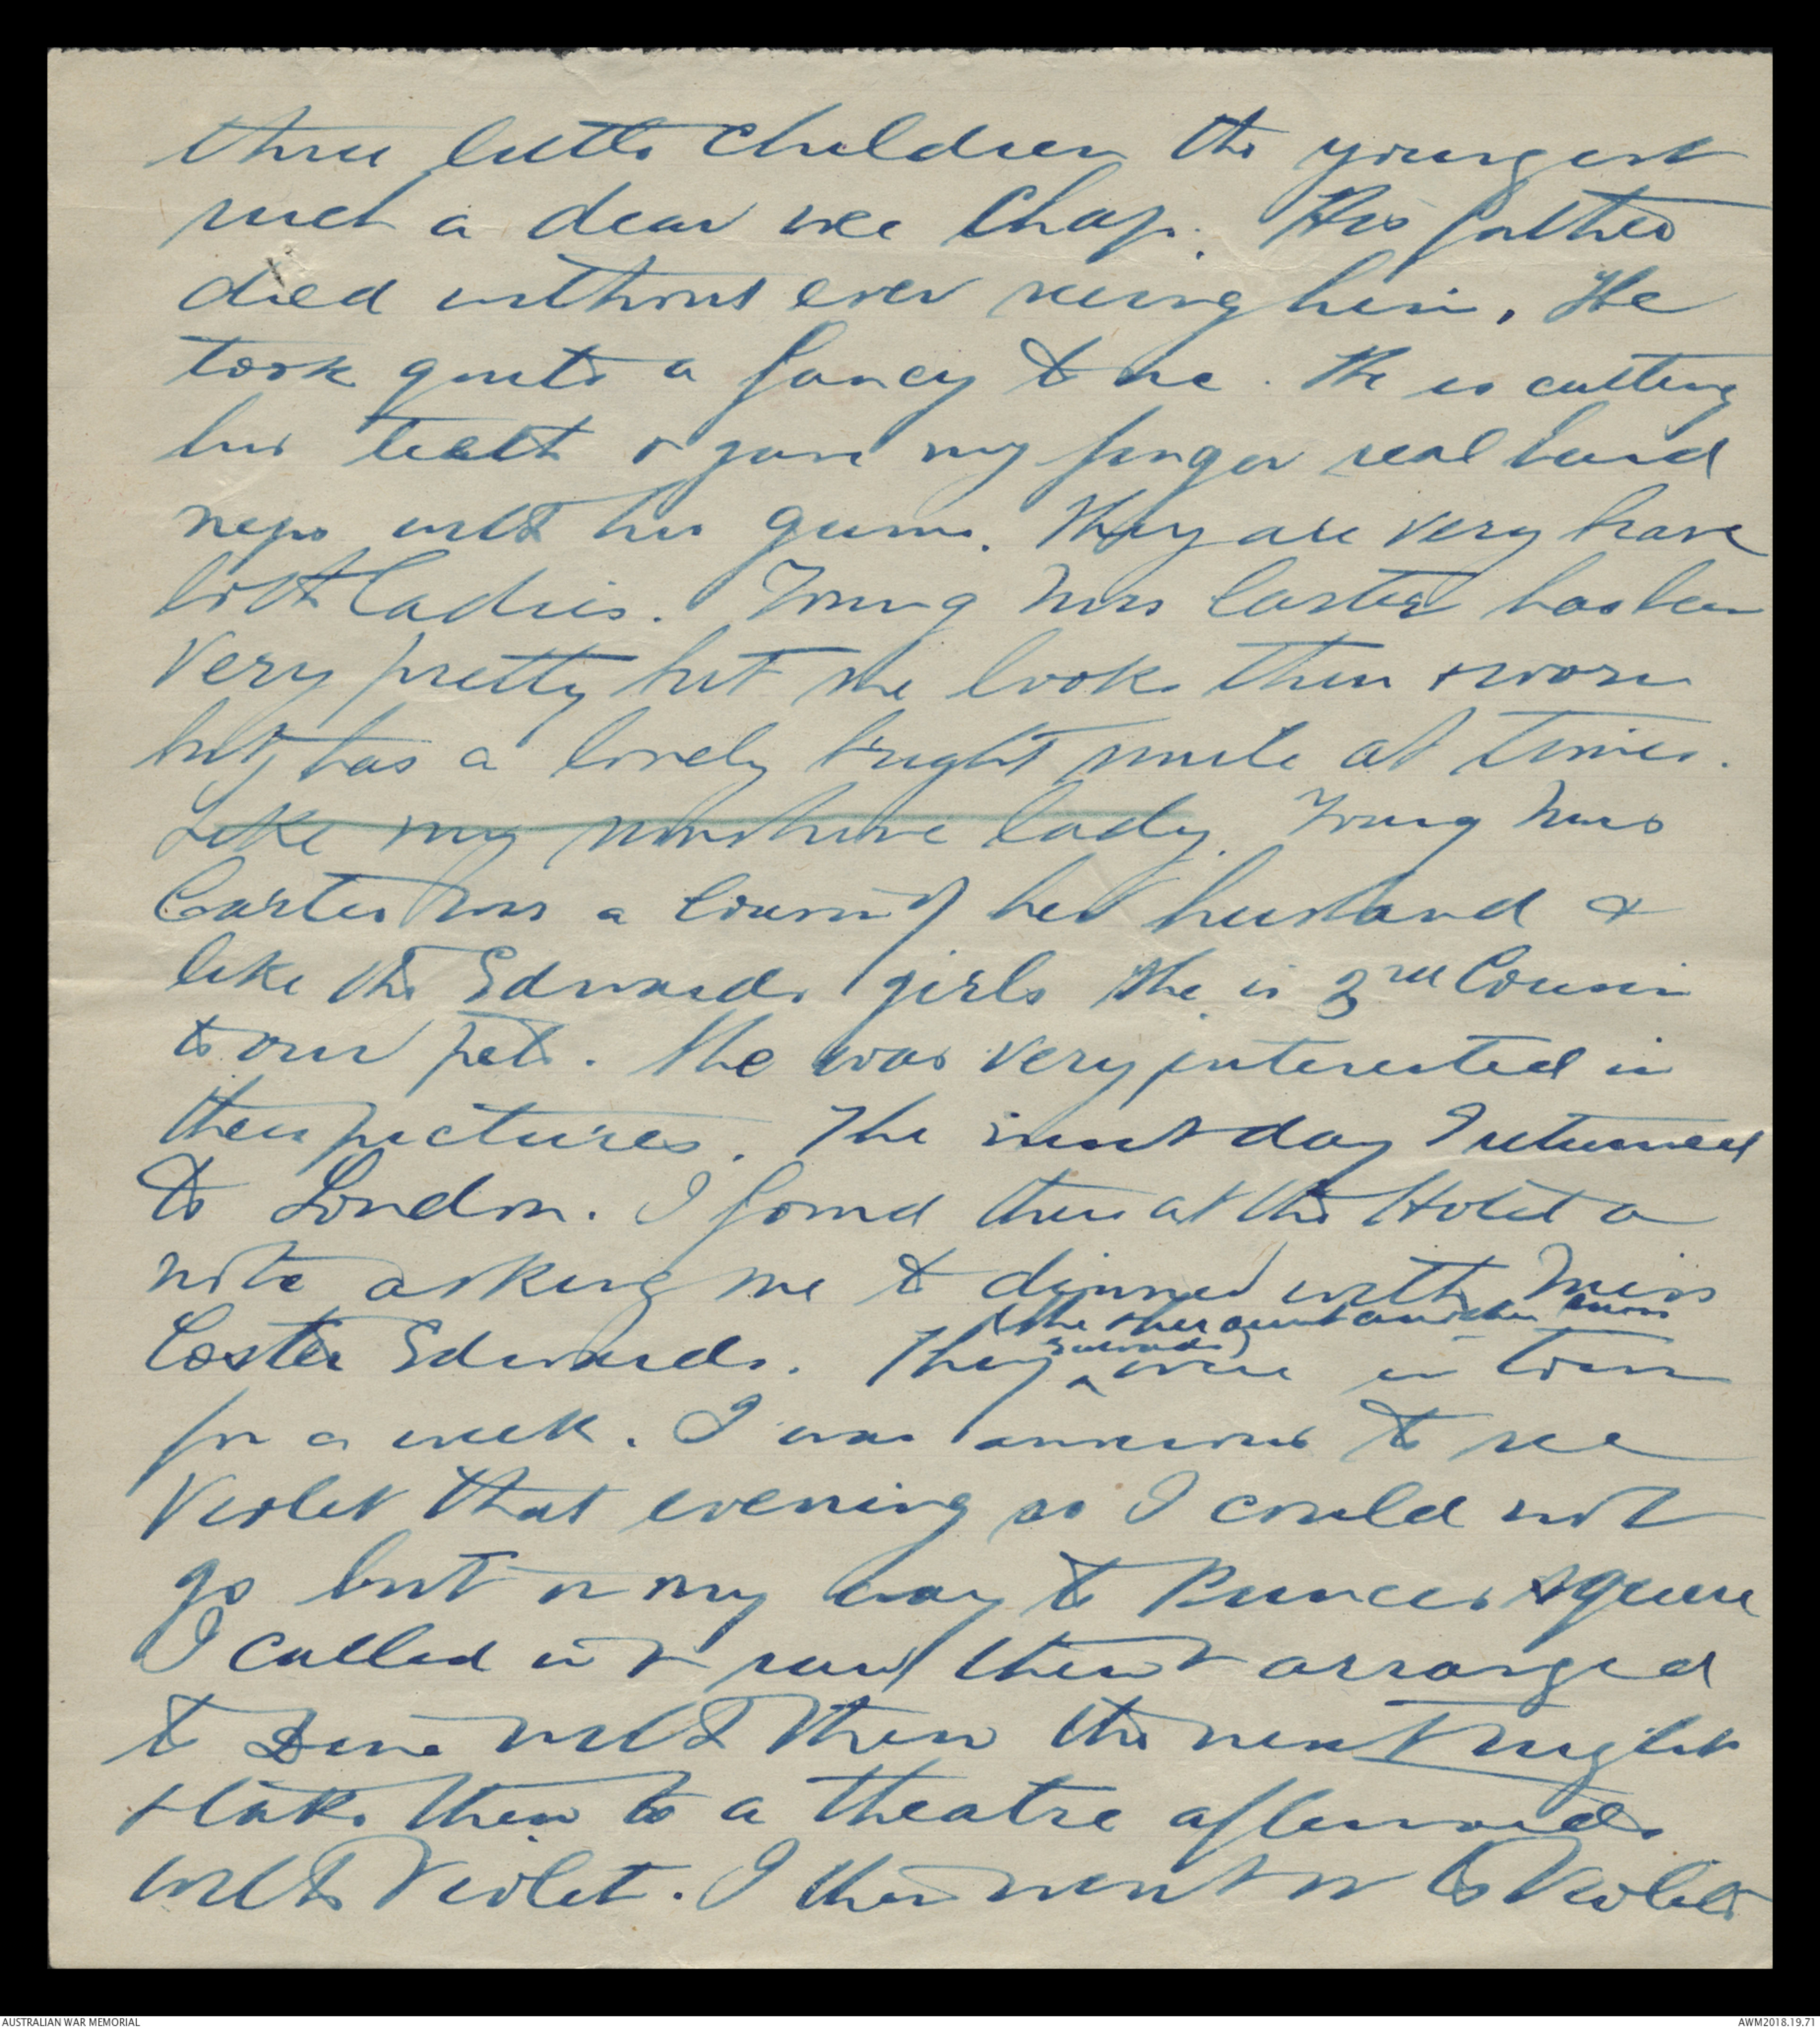 three little children the youngest
such a dear wee chap. His father
died without ever seeing him. He
took quite a fancy to me. He is cutting
his teeth & gave my finger real hard
nips with his gums. They are very brave
both ladies. Young Mrs Carter has been
very pretty but she looks thin & worn
but has a lovely bright smile at times.
Like my sunshine lady. Young Mrs
Carter was a cousin of her husband &
like the Edwards girls she is 3rd Cousin
to our pets. She was very interested in
their pictures. The next day I returned
to London. I found there at the Hotel a
note asking me to dinner with Miss
(she & her aunt another Miss
Coster Edwards. They ^ were in town
Edwards)
for a week. I was anxious to see
Violet that evening so I could not
go but on my way to Princes square
I called in & saw them & arranged
to dine with them the next night
& take them to a theatre afterwards
with Violet. I then went on to Violets
AUSTRALIAN WAR MEMORIAL
AWM2018.19.71